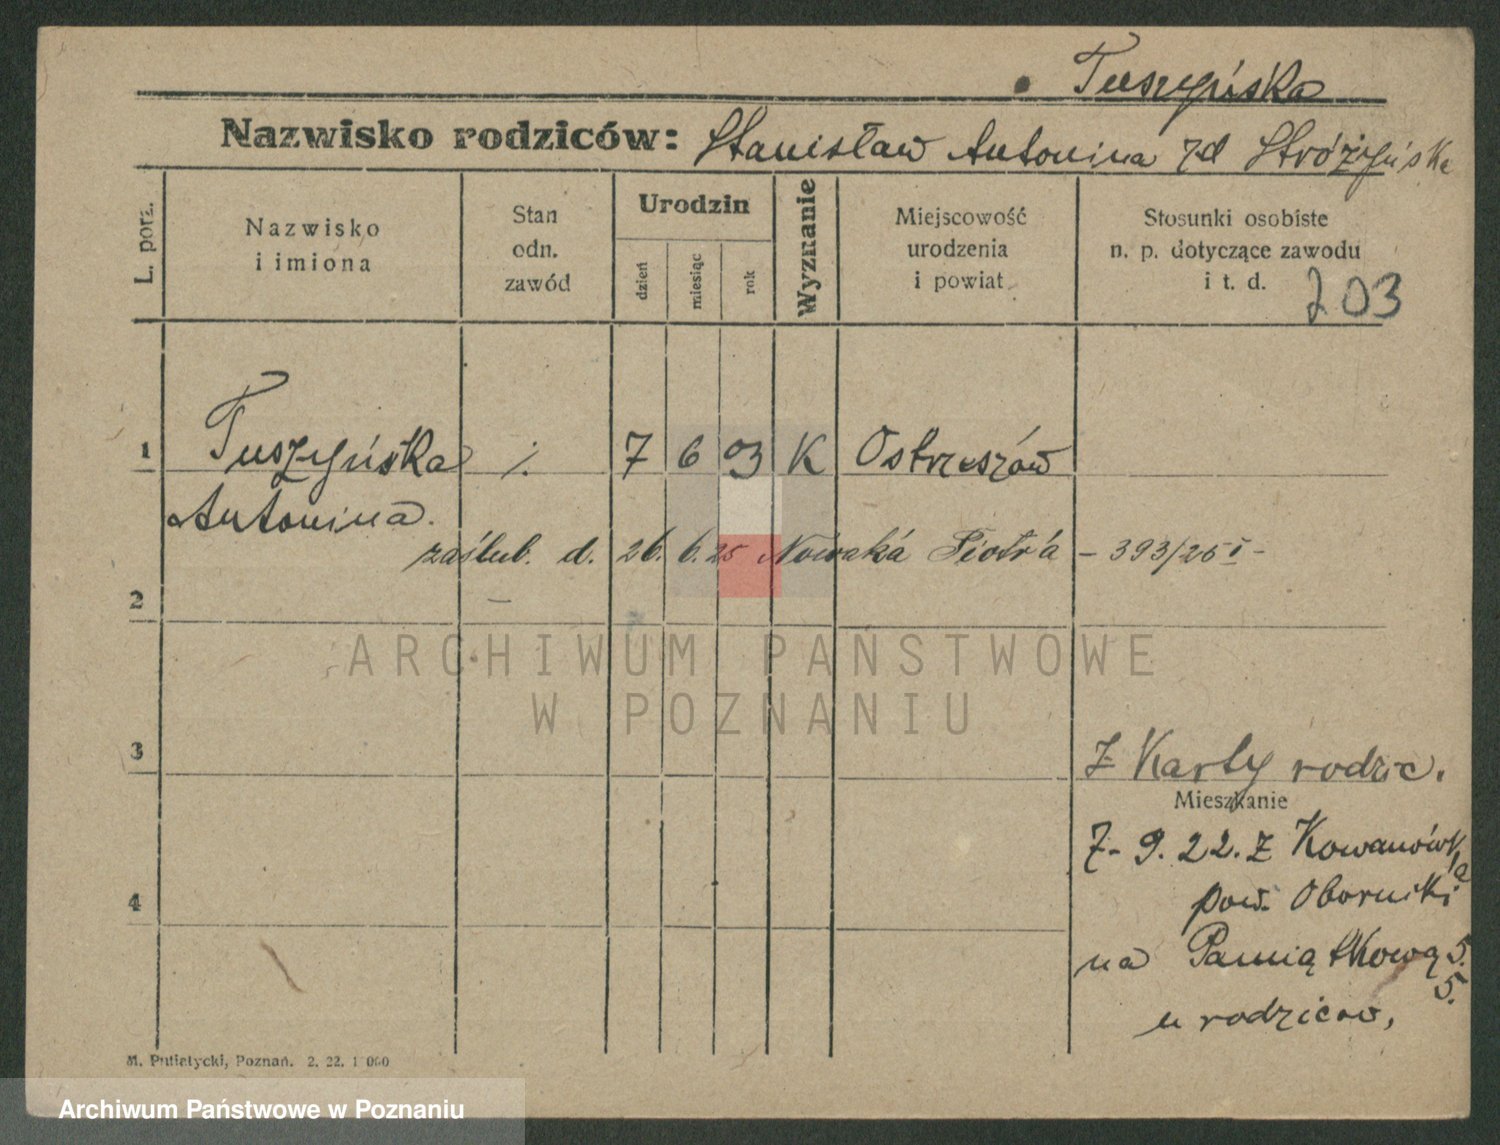 Tuszyńska
Nazwisko rodziców: Stanisław Antonina zd Stróżyńska
L. porz.
Nazwisko
i imiona
Stan
odn.
zawód
Urodzin
dzień
miesiąc
rok
Wyznanie
Miejscowość
urodzenia
i powiat
Stosunki osobiste
n. p. dotyczące zawodu
i t. d.
203
1
Tuszyńska
Antonina.
7 6 03 K Ostrzeszów
zaślub. d. 26. 6. 25 Nowaka Piotra - 393/25 I -
2
ARCHIWUM PAŃSTWOWE
W POZNANIU
3
Z Karty rodzic.
Mieszkanie
7. 9. 22. z Kowanówka
pow. Oborniki
4
na Pamiątkową 5.
5.
u rodziców,
M. Putiatycki, Poznań. 2. 22. 1 000
Archiwum Państwowe w Poznaniu